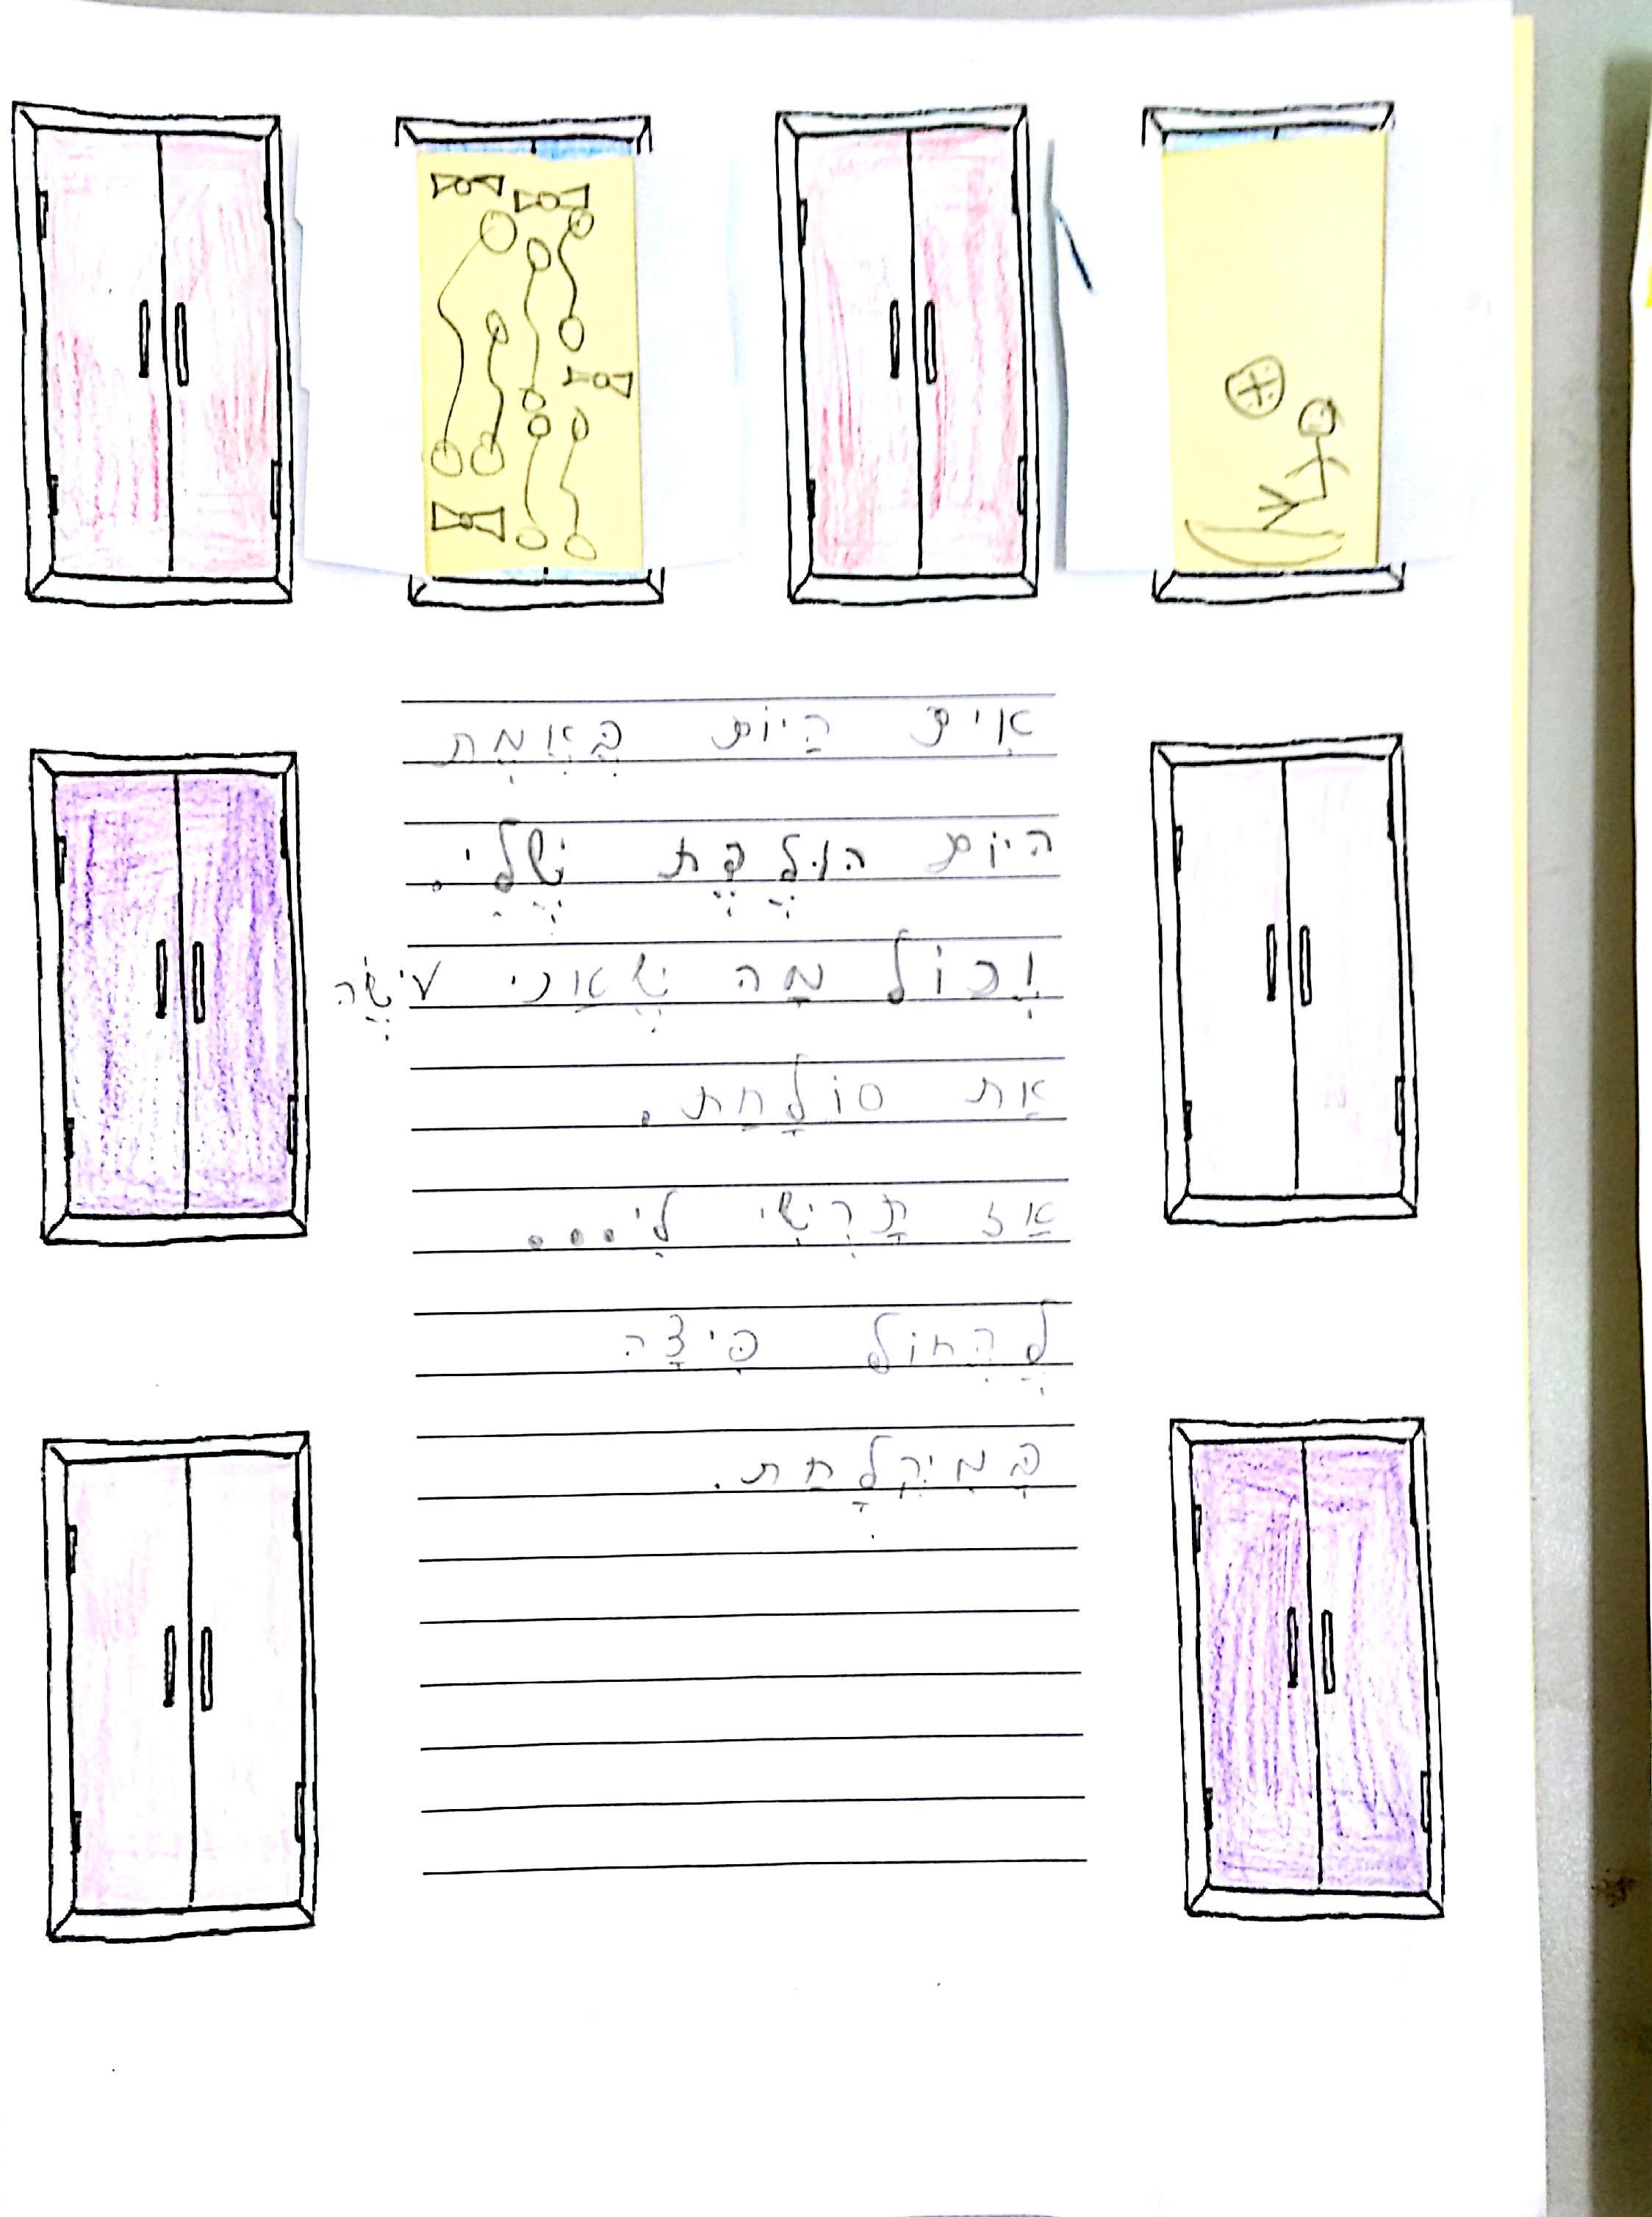 אִים הַיוֹם בֶּאֱמֶת
היוֹם הוּלֶדֶת שֶׁלִי.
וְכוֹל מַה שֶׁאַני עישֶׂה
אַת סוֹלַחַת.
אַז תַרְשִׁי לִי...
לֶהֱחוֹל פִּיצָה
בַּמִיקְלַחַת.